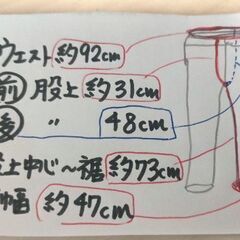 ウエスト 約92cm
前 股上 約31cm
後 〃 48cm
股上中心〜裾 約73cm
幅 約47cm